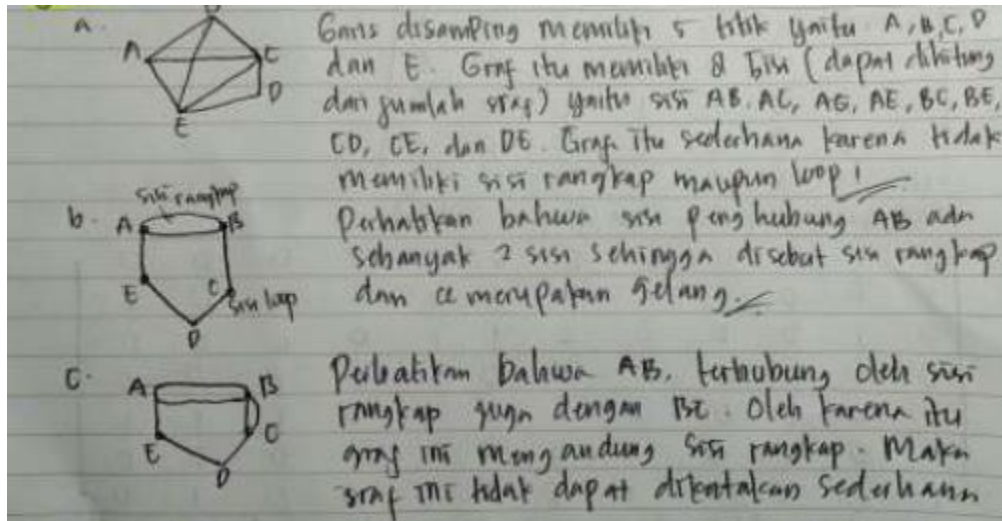 a.
A
C
D
E
Garis disamping memiliki 5 titik yaitu A, B, C, D
dan E. Graf itu memiliki 8 sisi (dapat dihitung
dari jumlah graf) yaitu sisi AB, AC, AG, AE, BC, BE,
CD, CE, dan DE. Graf itu sederhana karena tidak
memiliki sisi rangkap maupun loop
b.
sisi rangkap
A
B
E
C
sisi loop
D
Perhatikan bahwa sisi penghubung AB ada
sebanyak 2 sisi sehingga disebut sisi rangkap
dan cc merupakan gelang.
C.
A
B
E
C
D
Perhatikan bahwa AB, terhubung oleh sisi
rangkap juga dengan BC. Oleh karena itu
graf ini mengandung sisi rangkap. Maka
graf ini tidak dapat dikatakan sederhana